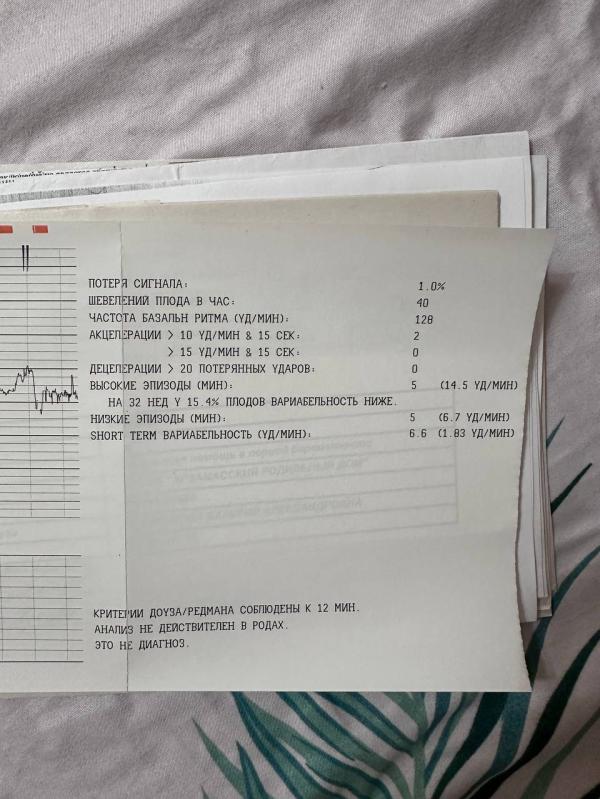 ПОТЕРЯ СИГНАЛА: 1.0%
ШЕВЕЛЕНИЙ ПЛОДА В ЧАС: 40
ЧАСТОТА БАЗАЛЬН РИТМА (УД/МИН): 128
АКЦЕЛЕРАЦИИ > 10 УД/МИН & 15 СЕК: 2
> 15 УД/МИН & 15 СЕК: 0
ДЕЦЕЛЕРАЦИИ > 20 ПОТЕРЯННЫХ УДАРОВ: 0
ВЫСОКИЕ ЭПИЗОДЫ (МИН): 5 (14.5 УД/МИН)
НА 32 НЕД У 15.4% ПЛОДОВ ВАРИАБЕЛЬНОСТЬ НИЖЕ.
НИЗКИЕ ЭПИЗОДЫ (МИН): 5 (6.7 УД/МИН)
SHORT TERM ВАРИАБЕЛЬНОСТЬ (УД/МИН): 6.6 (1.83 УД/МИН)
КРИТЕРИИ ДОУЗА/РЕДМАНА СОБЛЮДЕНЫ К 12 МИН.
АНАЛИЗ НЕ ДЕЙСТВИТЕЛЕН В РОДАХ.
ЭТО НЕ ДИАГНОЗ.